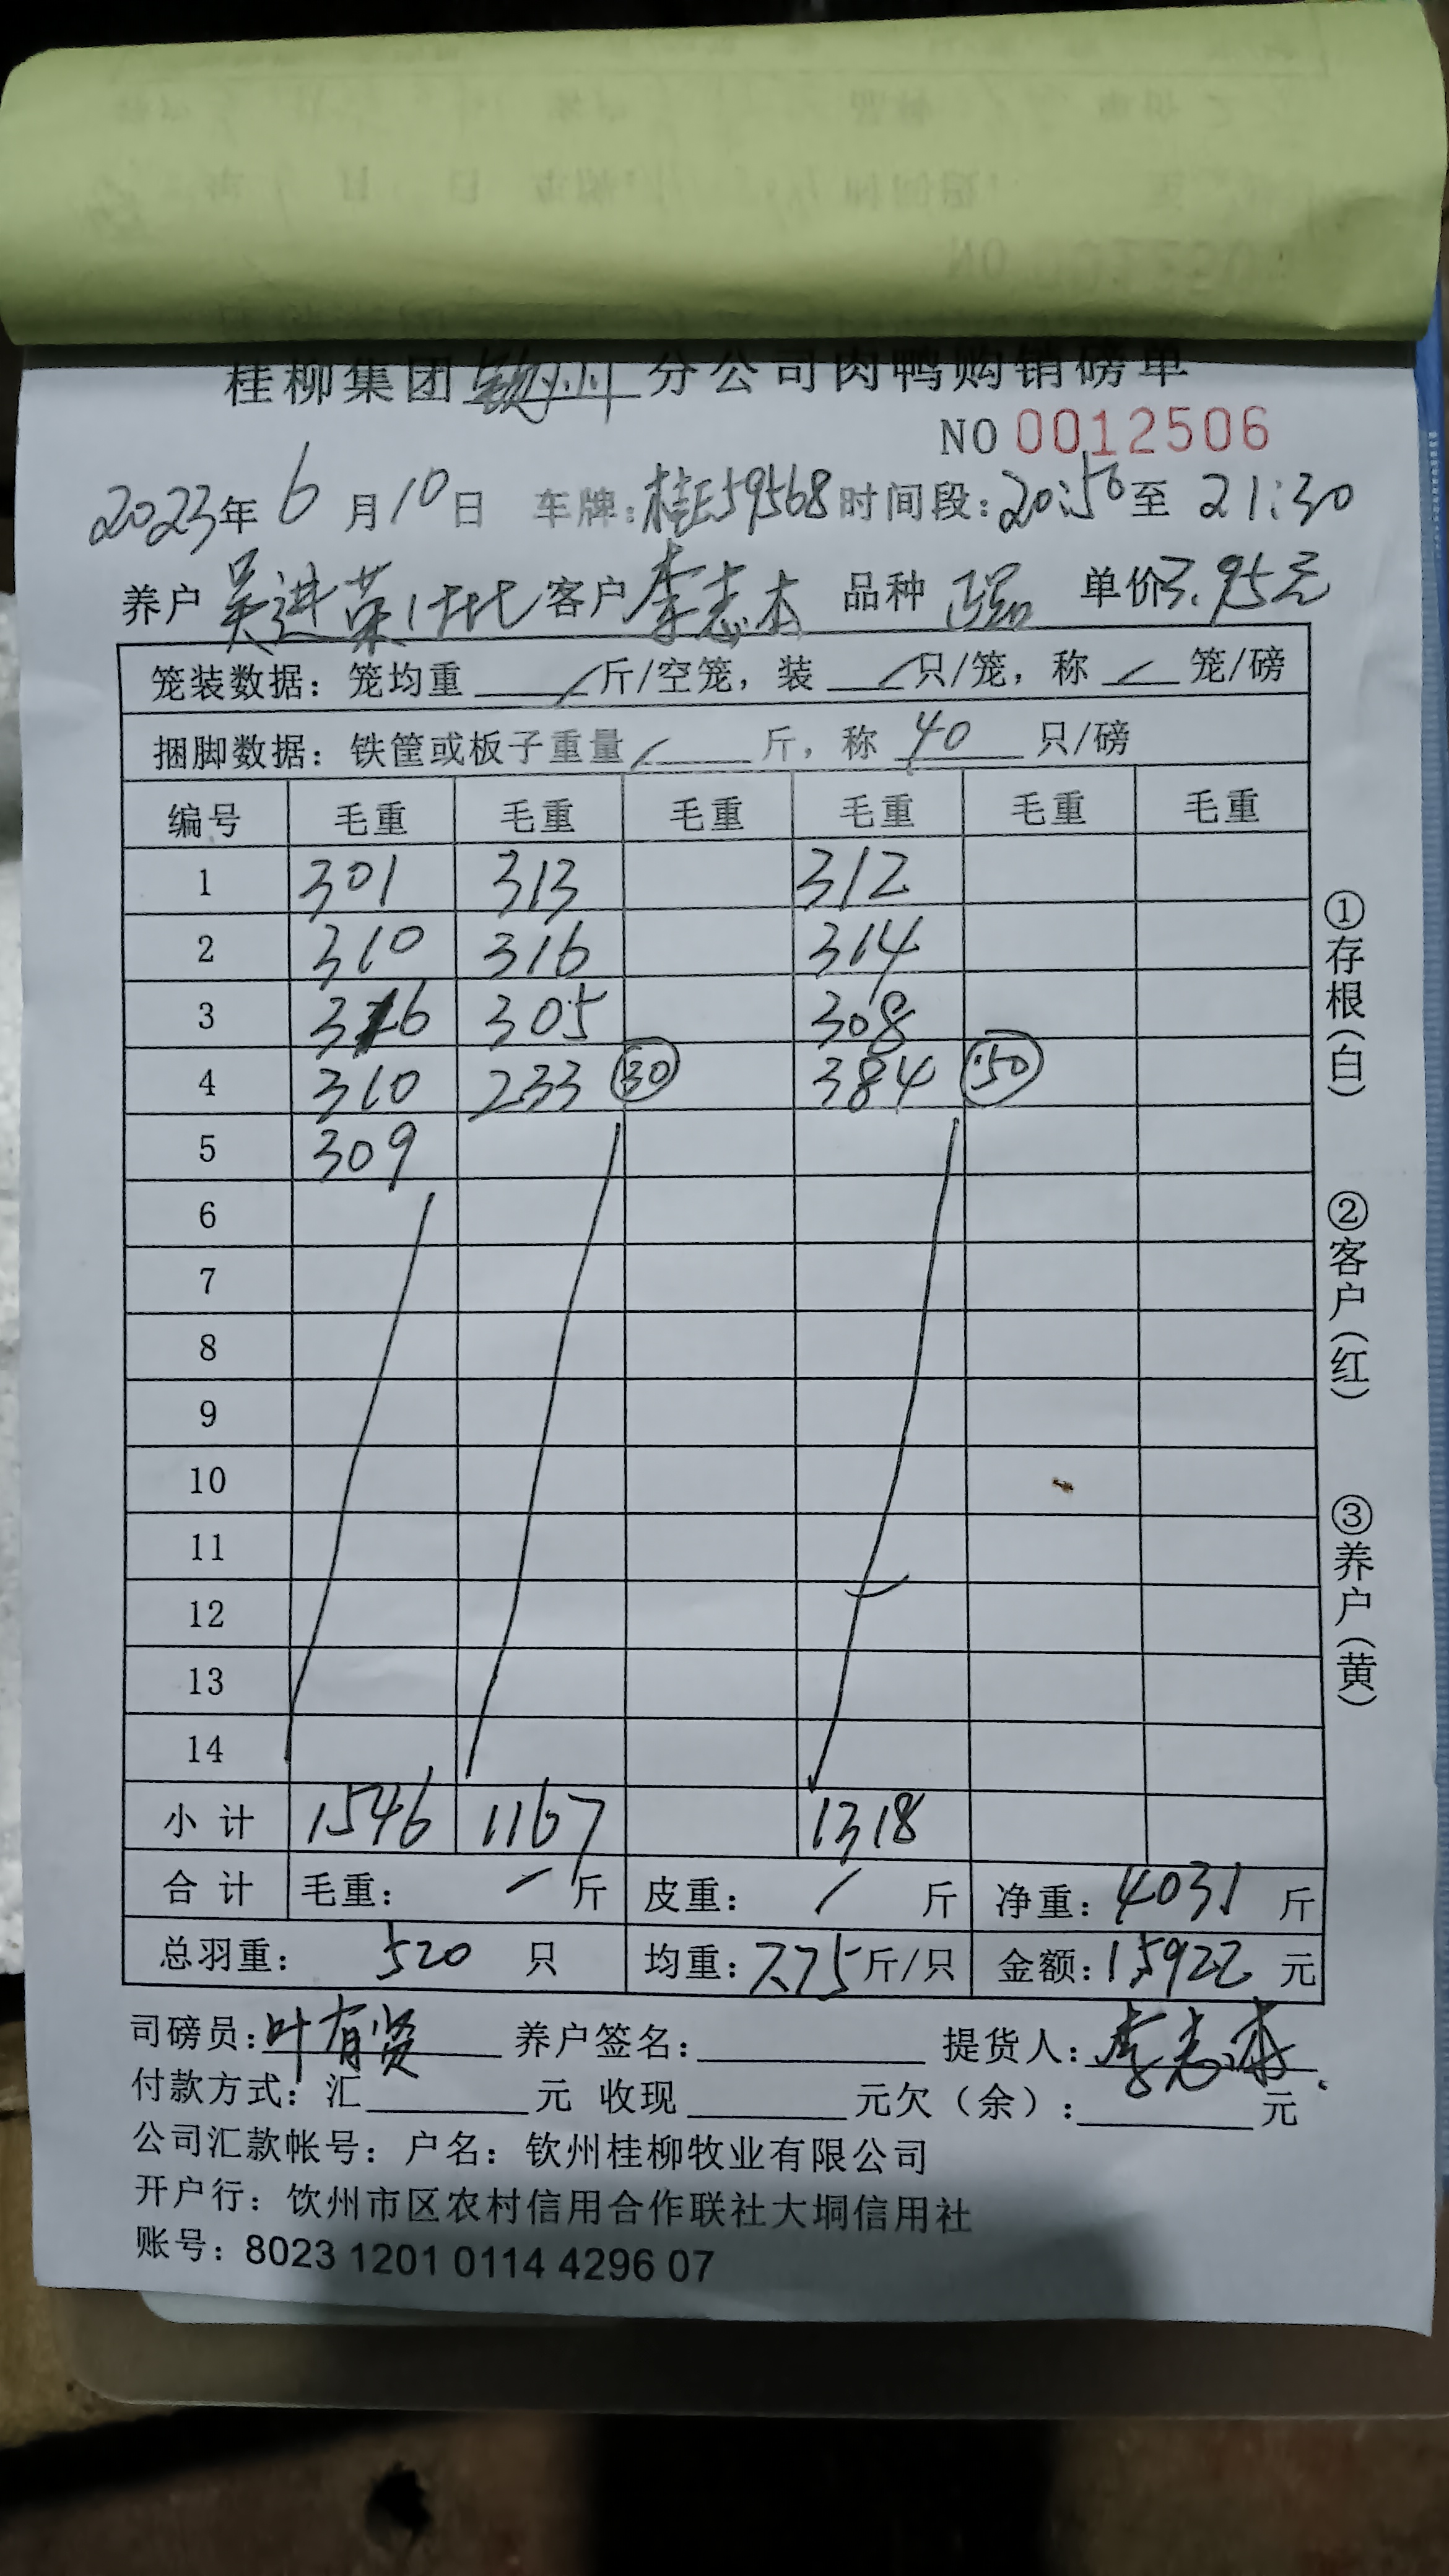 桂柳集团钦州分公司肉鸭购销磅单
NO 0012506
2023年6月10日 车牌:桂E59568 时间段:20:50至21:30
养户 吴进荣1批 客户 李志杰 品种 单价3.95元
笼装数据：笼均重 / 斤/空笼，装 / 只/笼，称 / 笼/磅
捆脚数据：铁筐或板子重量 / 斤，称 40 只/磅
编号 毛重 毛重 毛重 毛重 毛重 毛重
1 301 313 312
2 310 316 314
3 316 305 308
4 310 233 30 384 50
5 309
6
7
8
9
10
11
12
13
14
小计 1546 1167 1318
合计 毛重： / 斤 皮重： / 斤 净重：4031 斤
总羽重： 520 只 均重：7.75斤/只 金额：15922元
司磅员:叶有贤 养户签名: 提货人:李志杰
付款方式：汇 元 收现 元欠（余）: 元
公司汇款帐号：户名：钦州桂柳牧业有限公司
开户行：钦州市区农村信用合作联社大垌信用社
账号：8023 1201 0114 4296 07
①存根(白)
②客户(红)
③养户(黄)